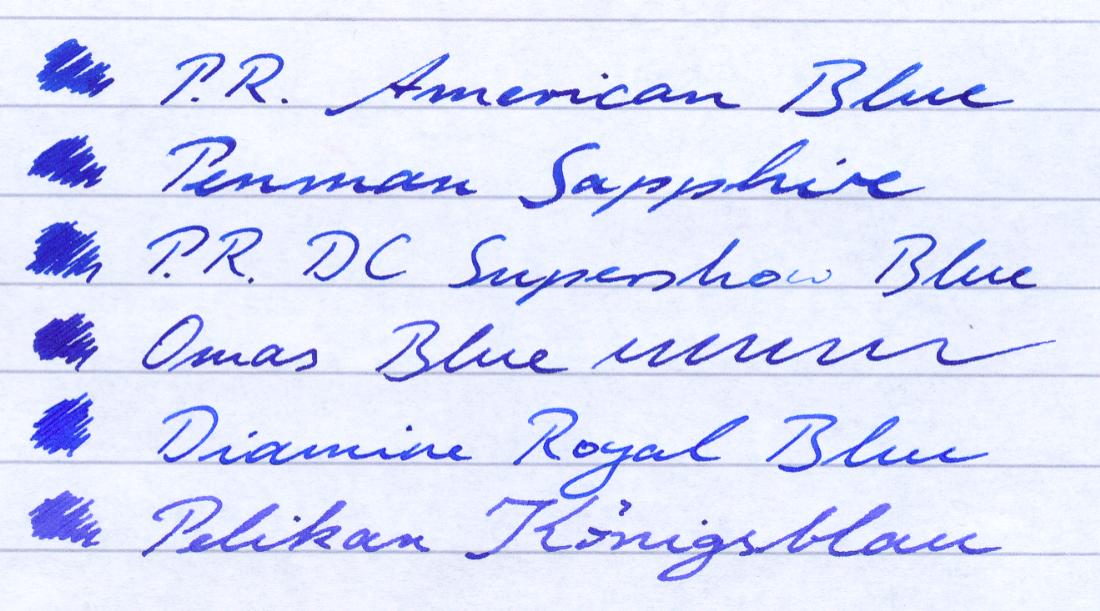 P.R. American Blue
Penman Sapphire
P.R. DC Supershow Blue
Omas Blue
Diamine Royal Blue
Pelikan Königsblau